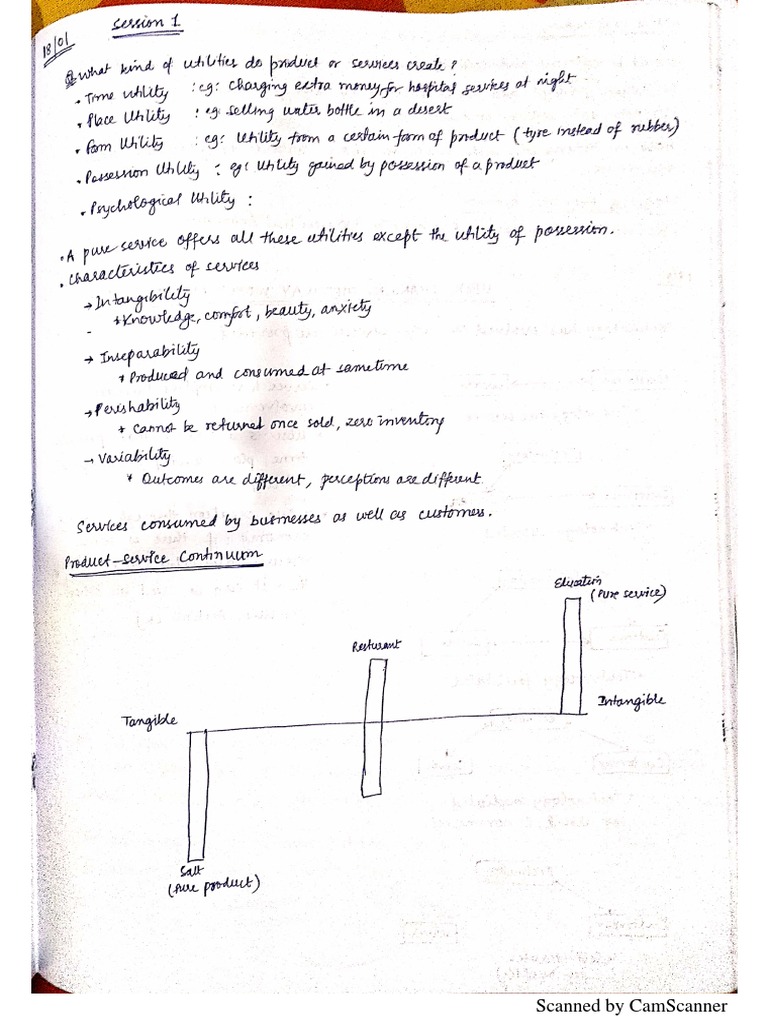 18/01
Session 1
Q What kind of utilities do product or services create?
• Time utility : eg: Charging extra money for hospital services at night
• Place Utility : eg selling water bottle in a desert
• Form Utility : eg: Utility from a certain form of product (tyre instead of rubber)
• Possession Utility : eg: Utility gained by possession of a product
• Psychological Utility :
• A pure service offers all these utilities except the utility of possession.
• Characteristics of services
→ Intangibility
* Knowledge, comfort, beauty, anxiety
→ Inseparability
* Produced and consumed at sametime
→ Perishability
* Cannot be returned once sold, zero inventory
→ Variability
* Outcomes are different, perceptions are different
Services consumed by businesses as well as customers.
Product-Service Continuum
Education
(Pure service)
Resturant
Intangible
Tangible
Salt
(Pure product)
Scanned by CamScanner